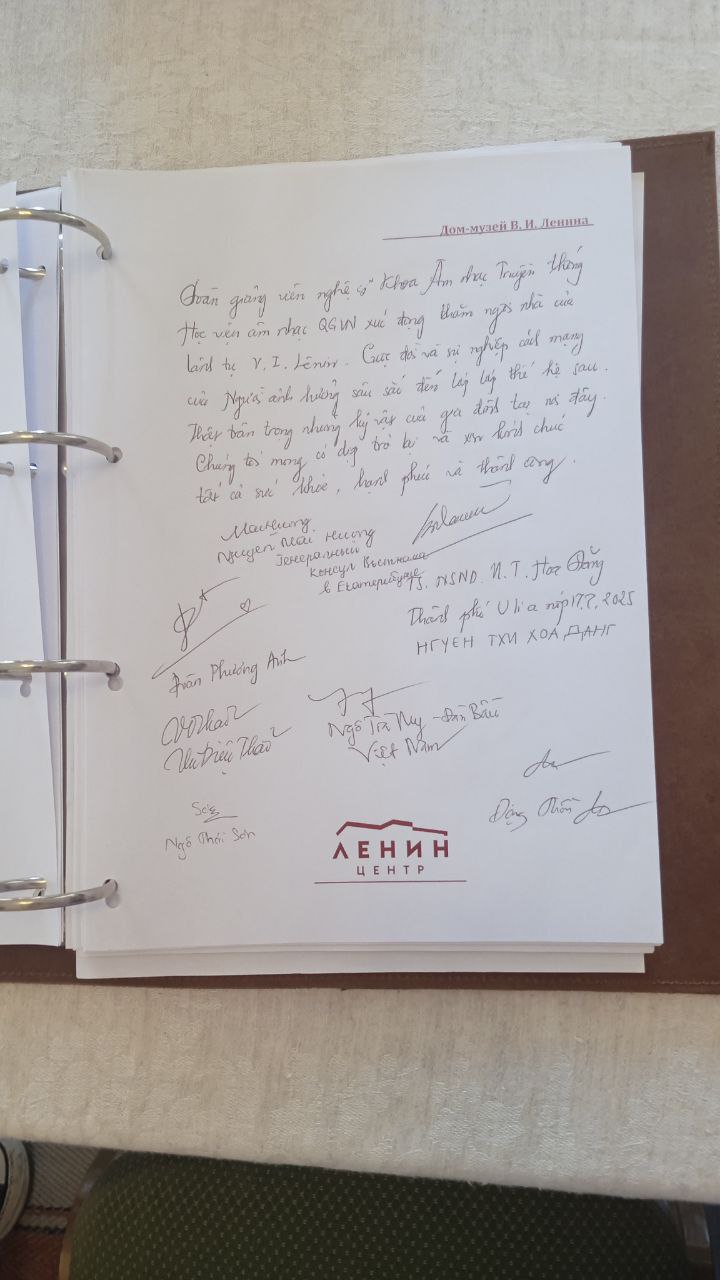 Дом-музей В. И. Ленина
Đoàn giảng viên nghệ sĩ Khoa Âm nhạc Truyền thống
Học viện âm nhạc QGVN xúc động thăm ngôi nhà của
lãnh tụ V. I. Lênin. Cuộc đời và sự nghiệp cách mạng
của Người ảnh hưởng sâu sắc đến lớp lớp thế hệ sau.
Thật trân trọng những kỷ vật của gia đình tại nơi đây.
Chúng tôi mong có dịp trở lại và xin kính chúc
tất cả sức khỏe, hạnh phúc và thành công.
Nguyễn Mai Hương
Генеральный
консул Вьетнама
в Екатеринбурге
TS. NSND. N. T. Hoa Đăng
Thành phố 2025
НГУЕН ТХИ ХОА ДАНГ
Đoàn Phương Anh
Vũ Diệu Thảo
Ngô Trà My - Đàn Bầu
Việt Nam
Ngô Thái Sơn
ЛЕНИН
ЦЕНТР